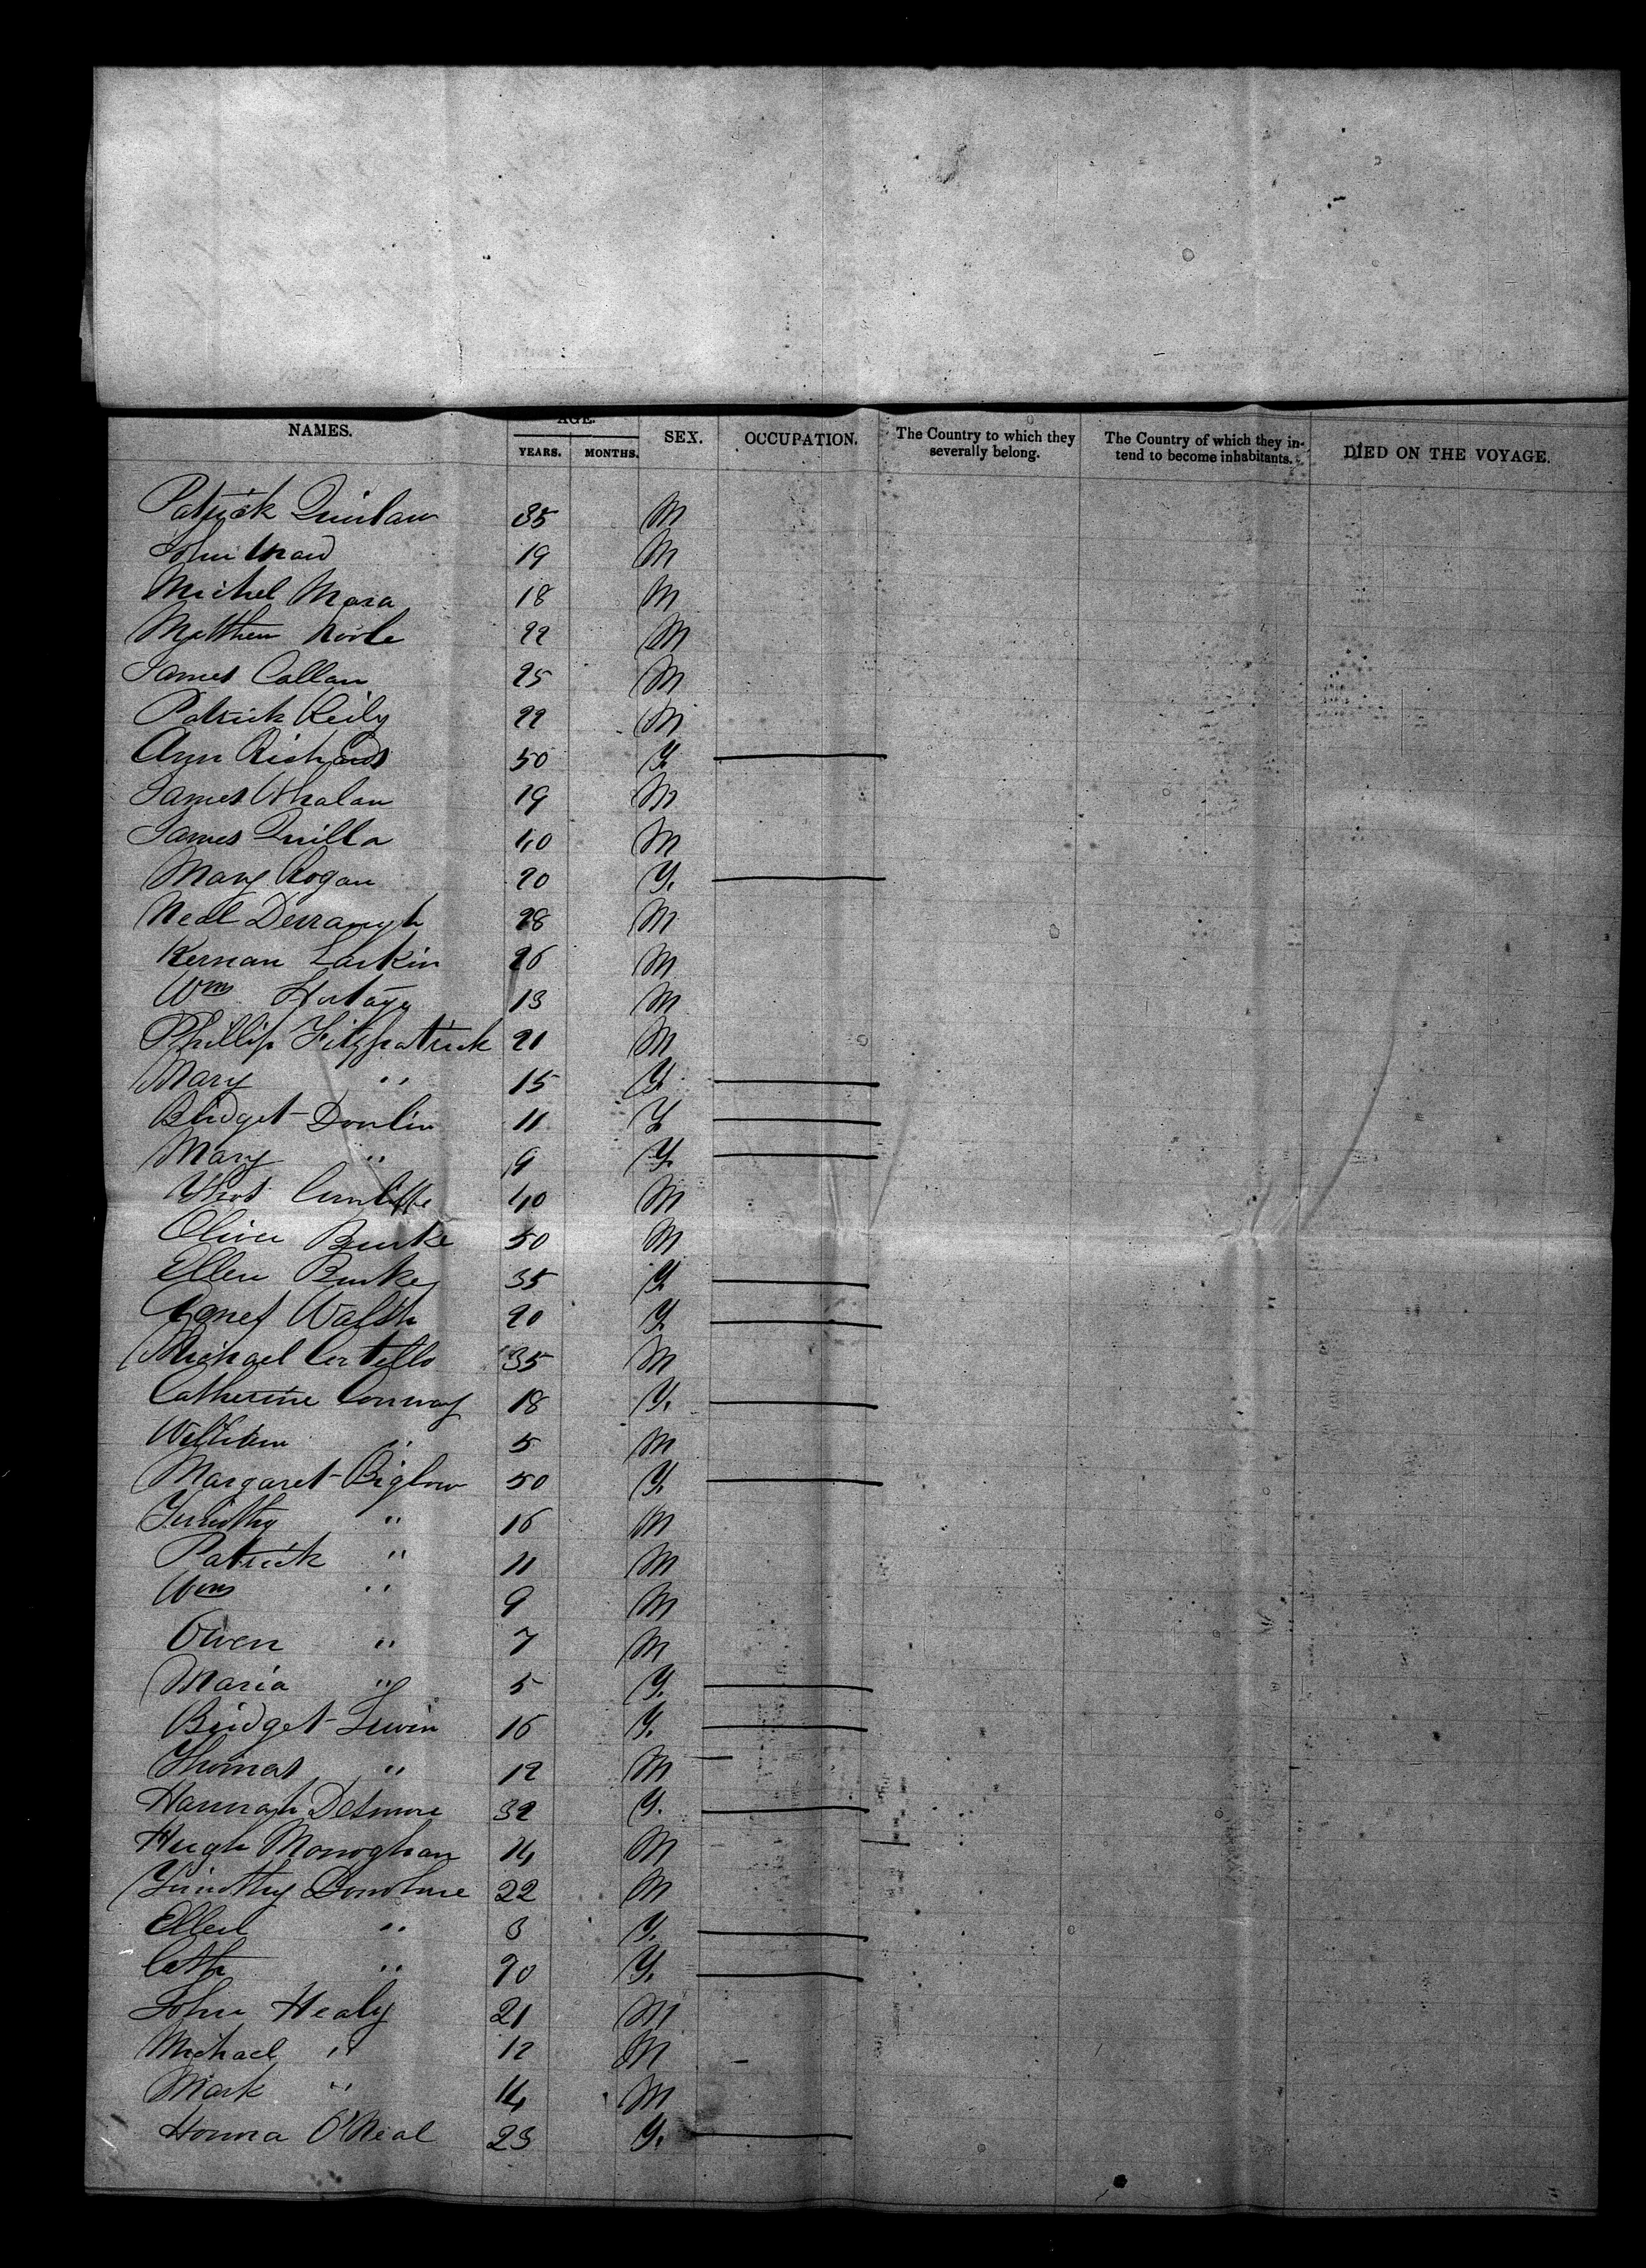 NAMES. AGE. SEX. OCCUPATION. The Country to which they severally belong. The Country of which they in-tend to become inhabitants. DIED ON THE VOYAGE.
YEARS. MONTHS.
Patrick Quinlan 35 M
John 19 M
Michel Mara 18 M
Matthew 22 M
James Callan 25 M
Patrick Reily 22 M
Ann Richards 50 F.
James Whalan 19 M
James Quilla 40 M
Mary Rogan 20 F.
Neal Derraugh 28 M
Kernan Larkin 26 M
Wm 13 M
Phillip Fitzpatrick 21 M
Mary " 15 F.
Bridget Donlin 11 F
Mary " 9 F.
Thos Cunliffe 40 M
Oliver Burke 50 M
Ellen Burke 35 F.
Agnes Walsh 20 F.
Michael Costello 35 M
Catherine Conway 18 F.
William " 5 M
Margaret Biglow 50 F.
Timothy " 16 M
Patrick " 11 M
Wm " 9 M
Owen " 7 M
Maria " 5 F.
Bridget 16 F.
Thomas " 12 M
Hannah 32 F.
Hugh Monoghan 14 M
Timothy Donohue 22 M
Ellen " 3 F.
Cath " 20 F.
John Healy 21 M
Michael " 12 M
Mark " 14 M
Honna O'Neal 23 F.